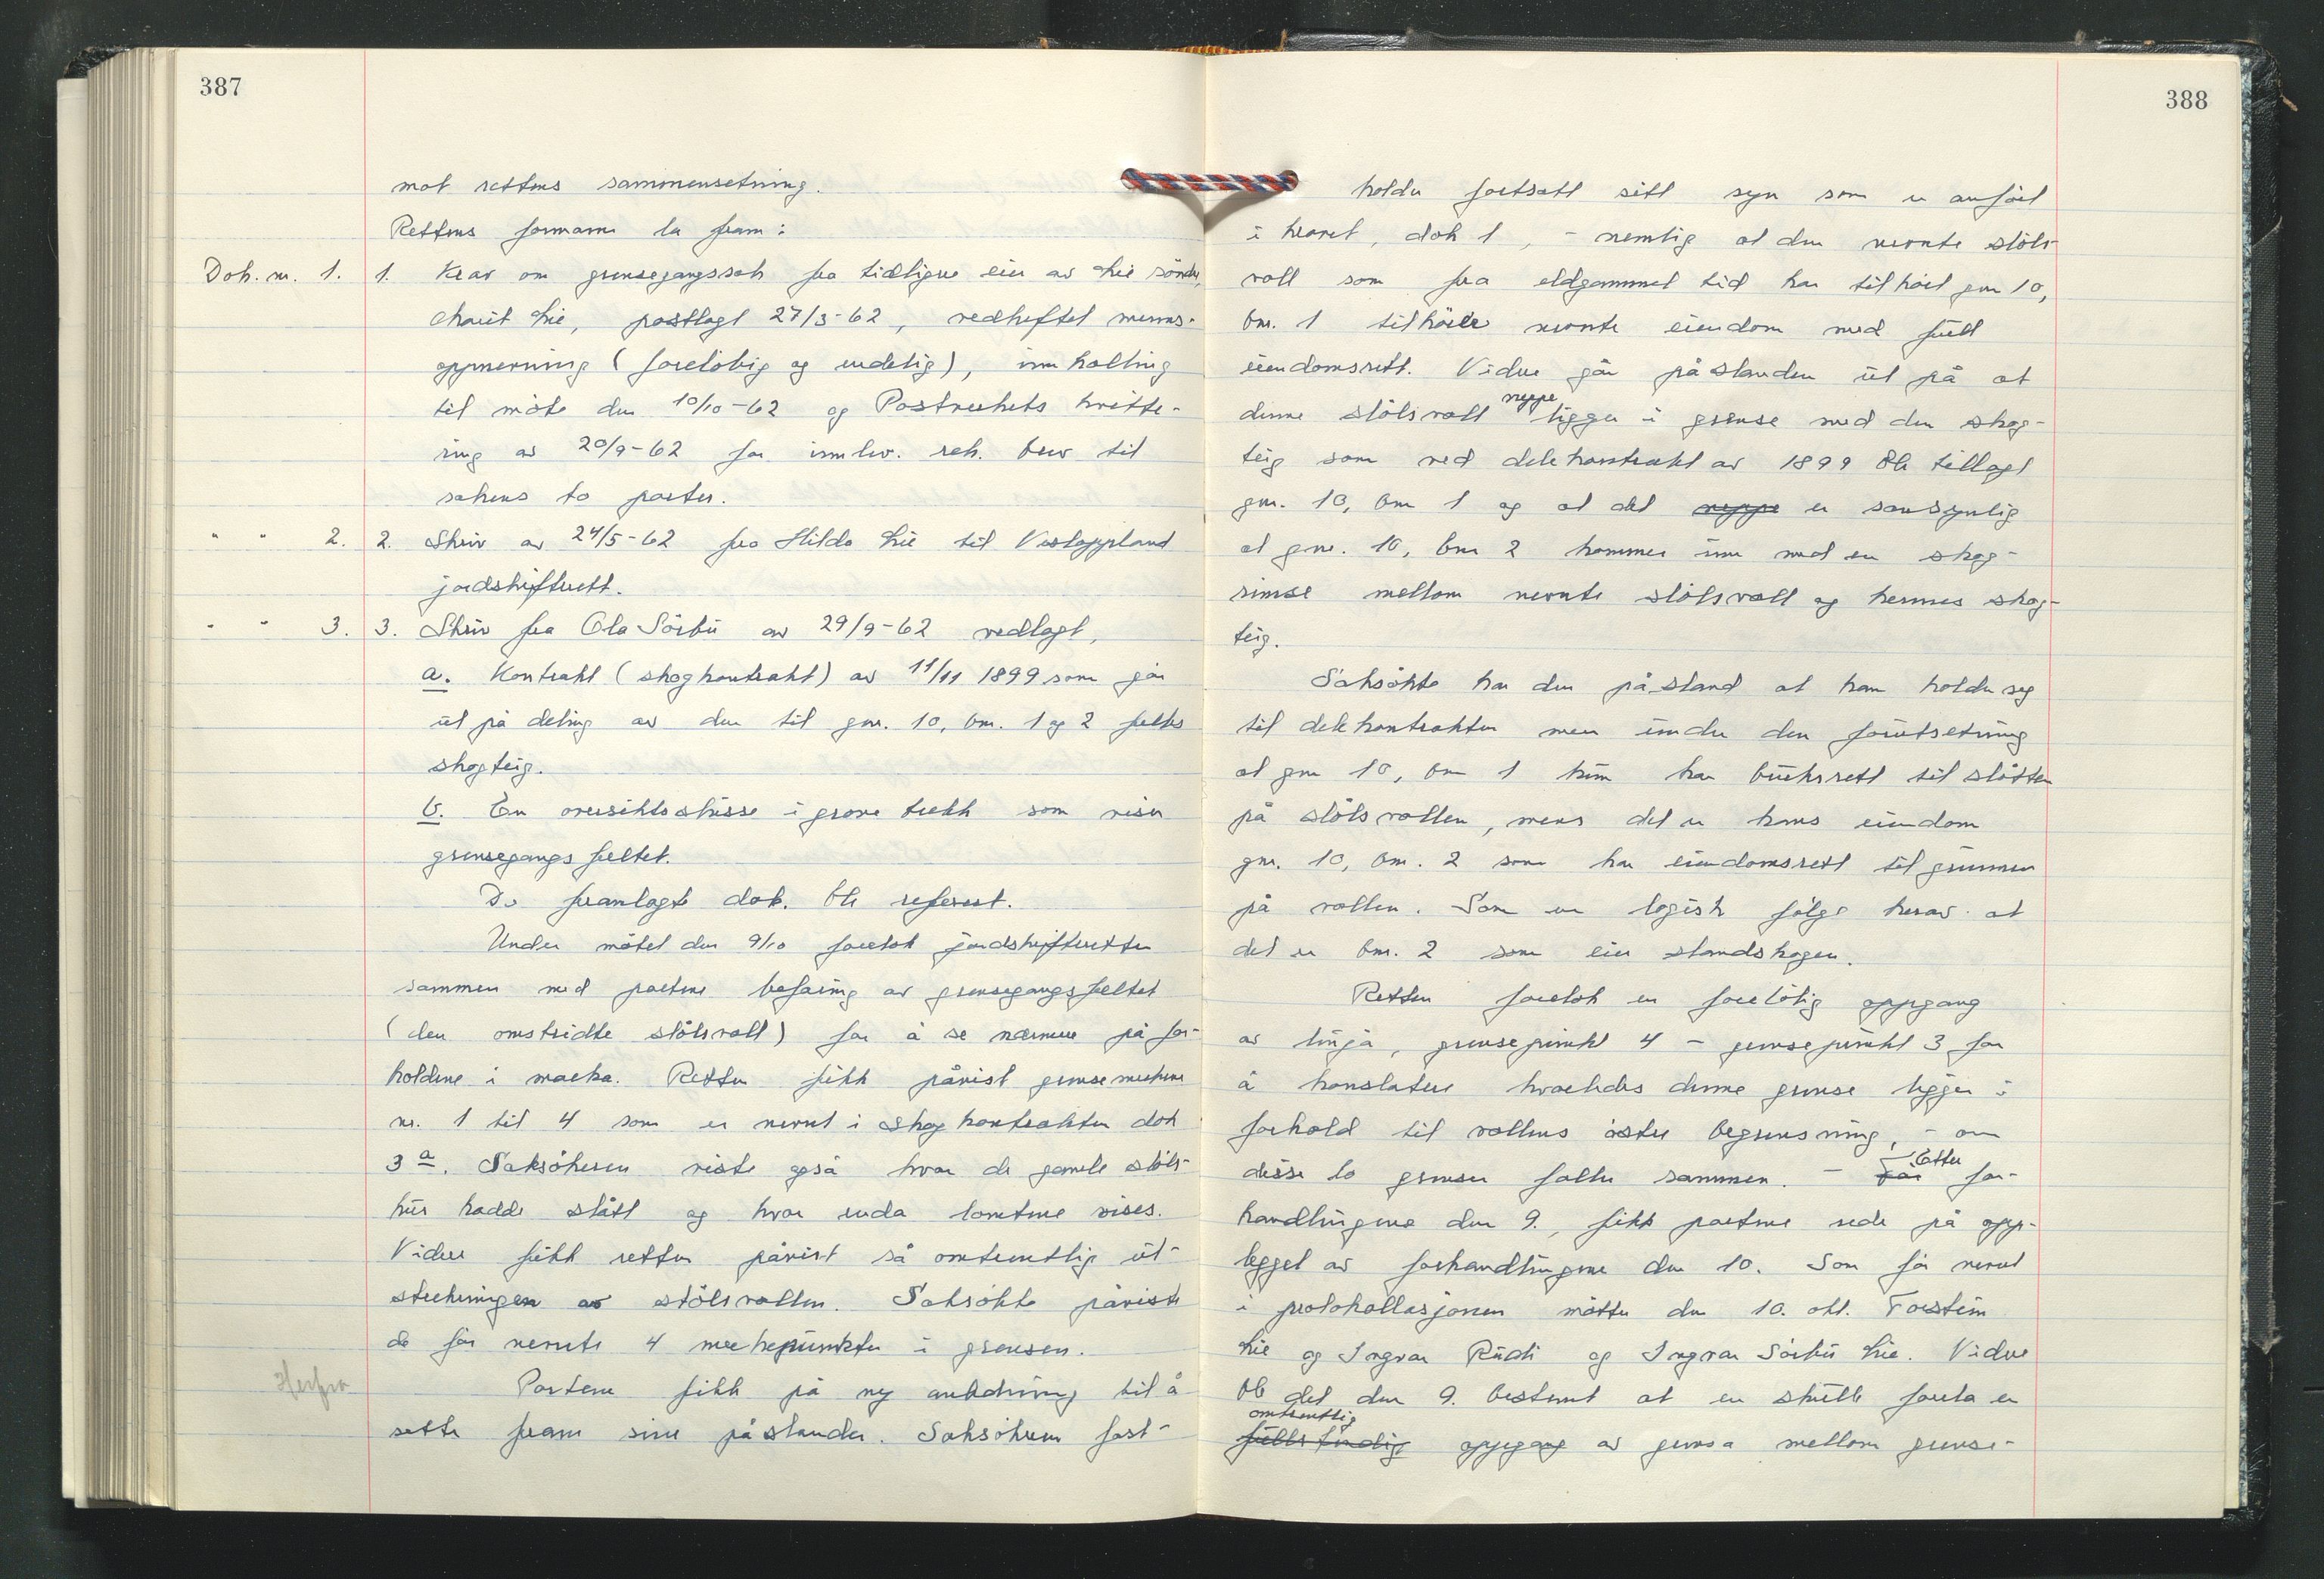 387
mot rettens sammensetning.
Rettens formann la fram:
Dok. nr. 1. 1. Krav om grensegangssak fra tidligere eier av Lie söndre,
Marit Lie, postlagt 27/3-62, vedheftet menns-
oppnevning (foreløbig og endelig), innkalling
til möte den 10/10-62 og Postverkets kvitte-
ring av 20/9-62 for innlev. rek. brev til
sakens to parter.
" " 2. 2. Skriv av 24/5-62 fra Hilda Lie til Vestoppland
jordskifterett.
" " 3. 3. Skriv fra Ola Sörbü av 29/9-62 vedlagt,
a. Kontrakt (skogkontrakt) av 11/11 1899 som går
üt på deling av den til gnr. 10, bnr. 1 og 2 felles
skogteig.
b. En oversiktsskisse i grove trekk som viser
grensegangsfeltet.
De framlagte dok. ble referert.
Under mötet den 9/10 foretok jordskifteretten
sammen med partene befaring av grensegangsfeltet
(den omstridte stölsvoll) for å se nærmere på for-
holdene i marka. Retten fikk påvist grensemerkene
nr. 1 til 4 som er nevnt i skogkontrakten dok
3 a. Saksökeren viste også hvor de gamle stöls-
hüs hadde stått og hvor enda tomtene vises.
Videre fikk retten påvist så omtrentlig üt-
strekningen av stölsvollen. Saksökte påviste
de før nevnte 4 merkepünkter i grensen.
Herfra
Partene fikk på ny anledning til å
sette fram sine påstander. Saksökeren fast-
388
holder fortsatt sitt syn som er anført
i kravet, dok 1, - nemlig at den nevnte stöls-
voll som fra eldgammel tid har tilhört gnr 10,
bnr. 1 tilhörer nevnte eiendom med füll
eiendomsrett. Videre går påstanden üt på at
denne stölsvoll neppe ligger i grense med den skog-
teig som ved delekontrakt av 1899 ble tillagt
gnr. 10, bnr 1 og at det neppe er sansynlig
at gnr. 10, bnr 2 kommer inn med en skog-
rimse mellom nevnte stölsvoll og hennes skog-
teig.
Saksökte har den påstand at han holder seg
til delekontrakten men ünder den forütsetning
at gnr 10, bnr 1 kün har brüksrett til slåtten
på stölsvollen, mens det er hans eiendom
gnr. 10, bnr. 2 som har eiendomsrett til grünnen
på vollen. Som en logisk følge herav at
det er bnr. 2 som eier standskogen.
Retten foretok en foreløbig oppgang
av linja, grensepünkt 4 - grensepünkt 3 for
å konstatere hvorledes denne grense ligger i
forhold til vollens östre begrensning, - om
disse to grenser faller sammen. - Før Etter for-
handlingene den 9., fikk partene rede på opp-
legget av forhandlingene den 10. Som før nevnt
i protokollasjonen møtte den 10. okt. Torstein
Lie og Ingvar Rüdi og Ingvar Sörbü Lie. Videre
ble det den 9. bestemt at en skülle foreta en
omtrentlig
füllstendig oppgang av grensa mellom grense-